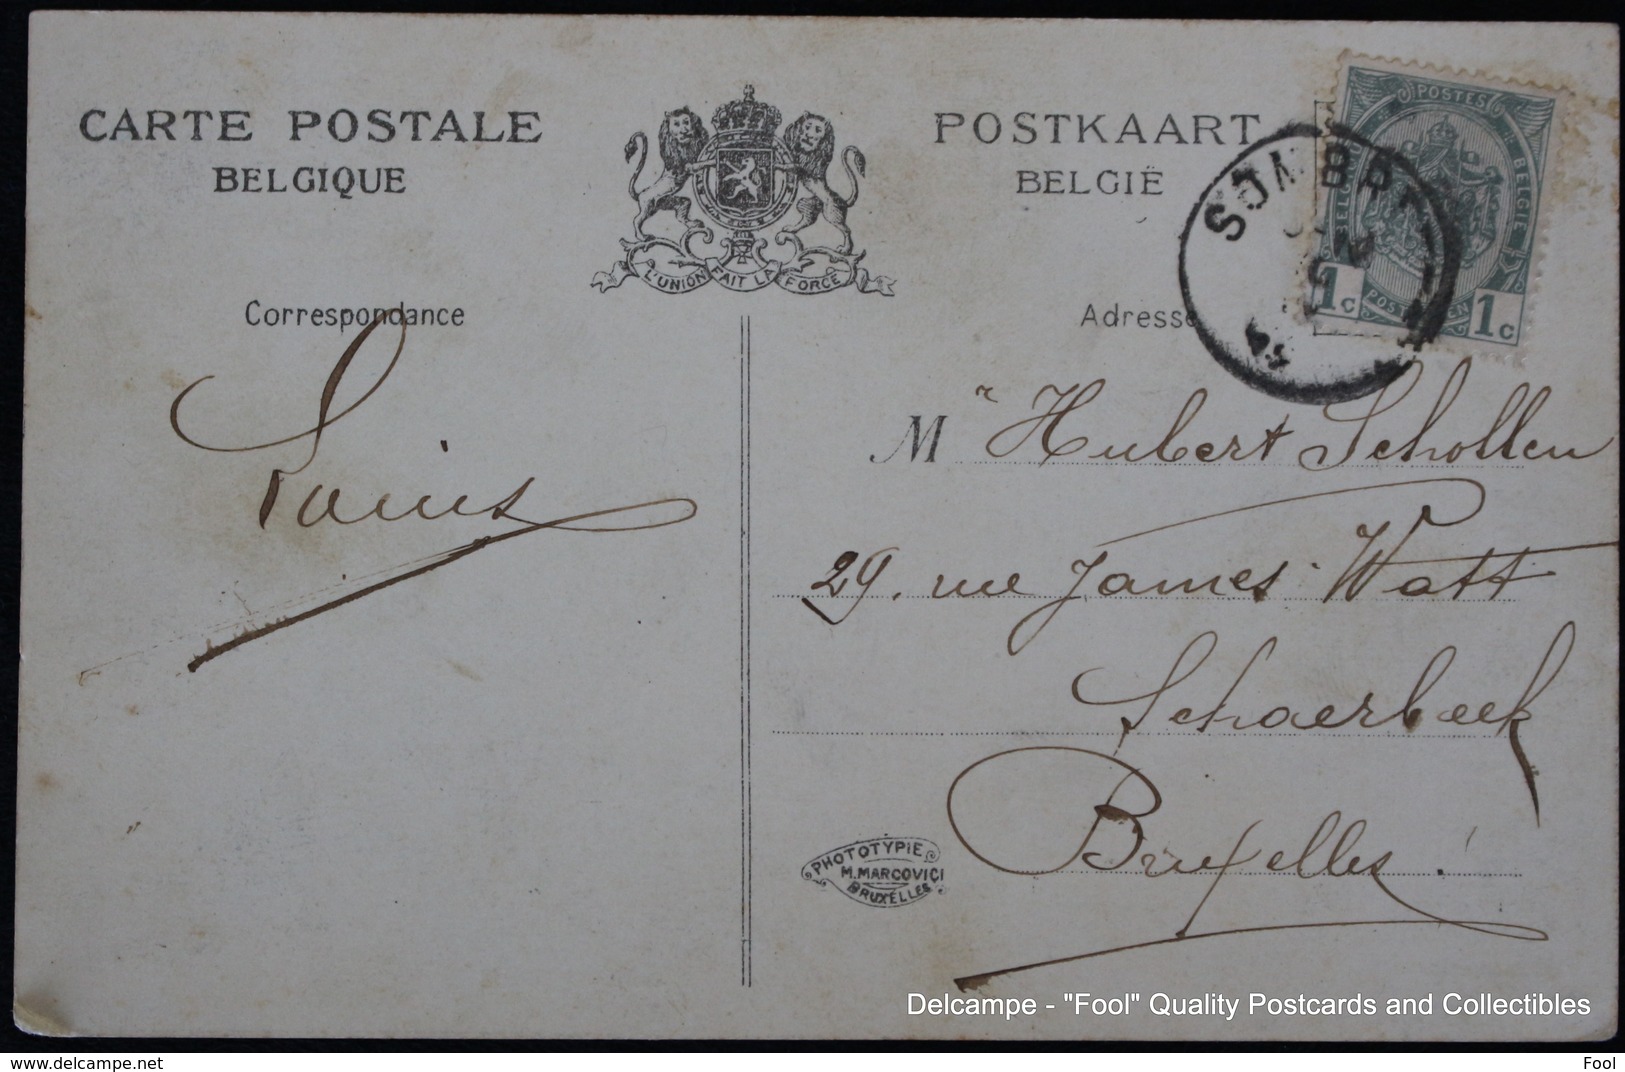 CARTE POSTALE
BELGIQUE
L'UNION FAIT LA FORCE
POSTKAART
BELGIË
POSTES
BELGIE
1c POSTERIJEN 1c
Correspondance
Adresse
Louis
M r Hubert Schollen
29. rue James Watt
Schaerbeek
Bruxelles
PHOTOTYPIE
M. MARCOVICI
BRUXELLES
Delcampe - "Fool" Quality Postcards and Collectibles
delcampe.net
Fool